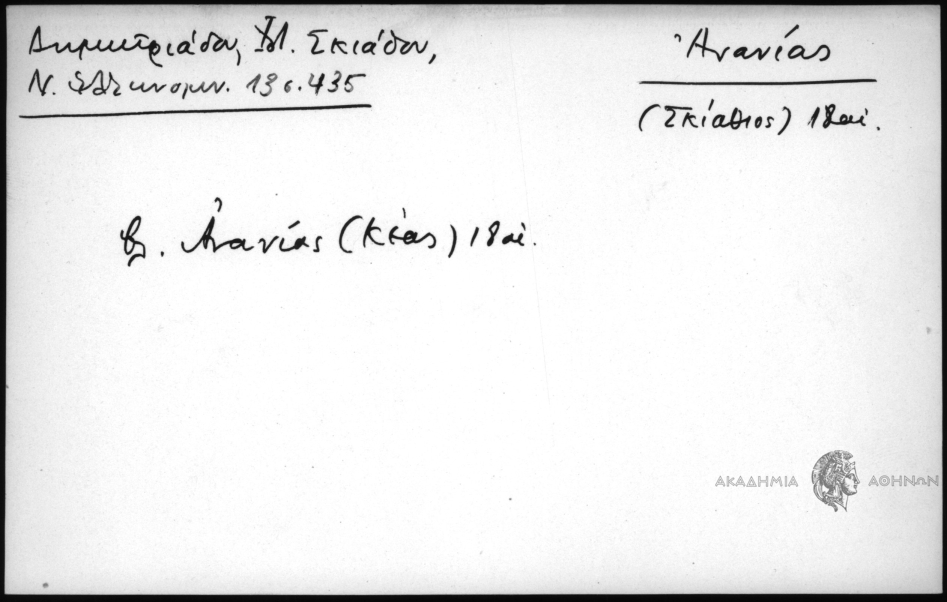 Δημητριάδου, Ἱστ. Σκιάθου,
Ν. Ἑλληνομν. 13 σ. 435
Ἀνανίας
(Σκίαθιος) 18 αἰ.
βλ. Ἀνανίας (Κέας) 18 αἰ.
ΑΚΑΔΗΜΙΑ ΑΘΗΝΩΝ